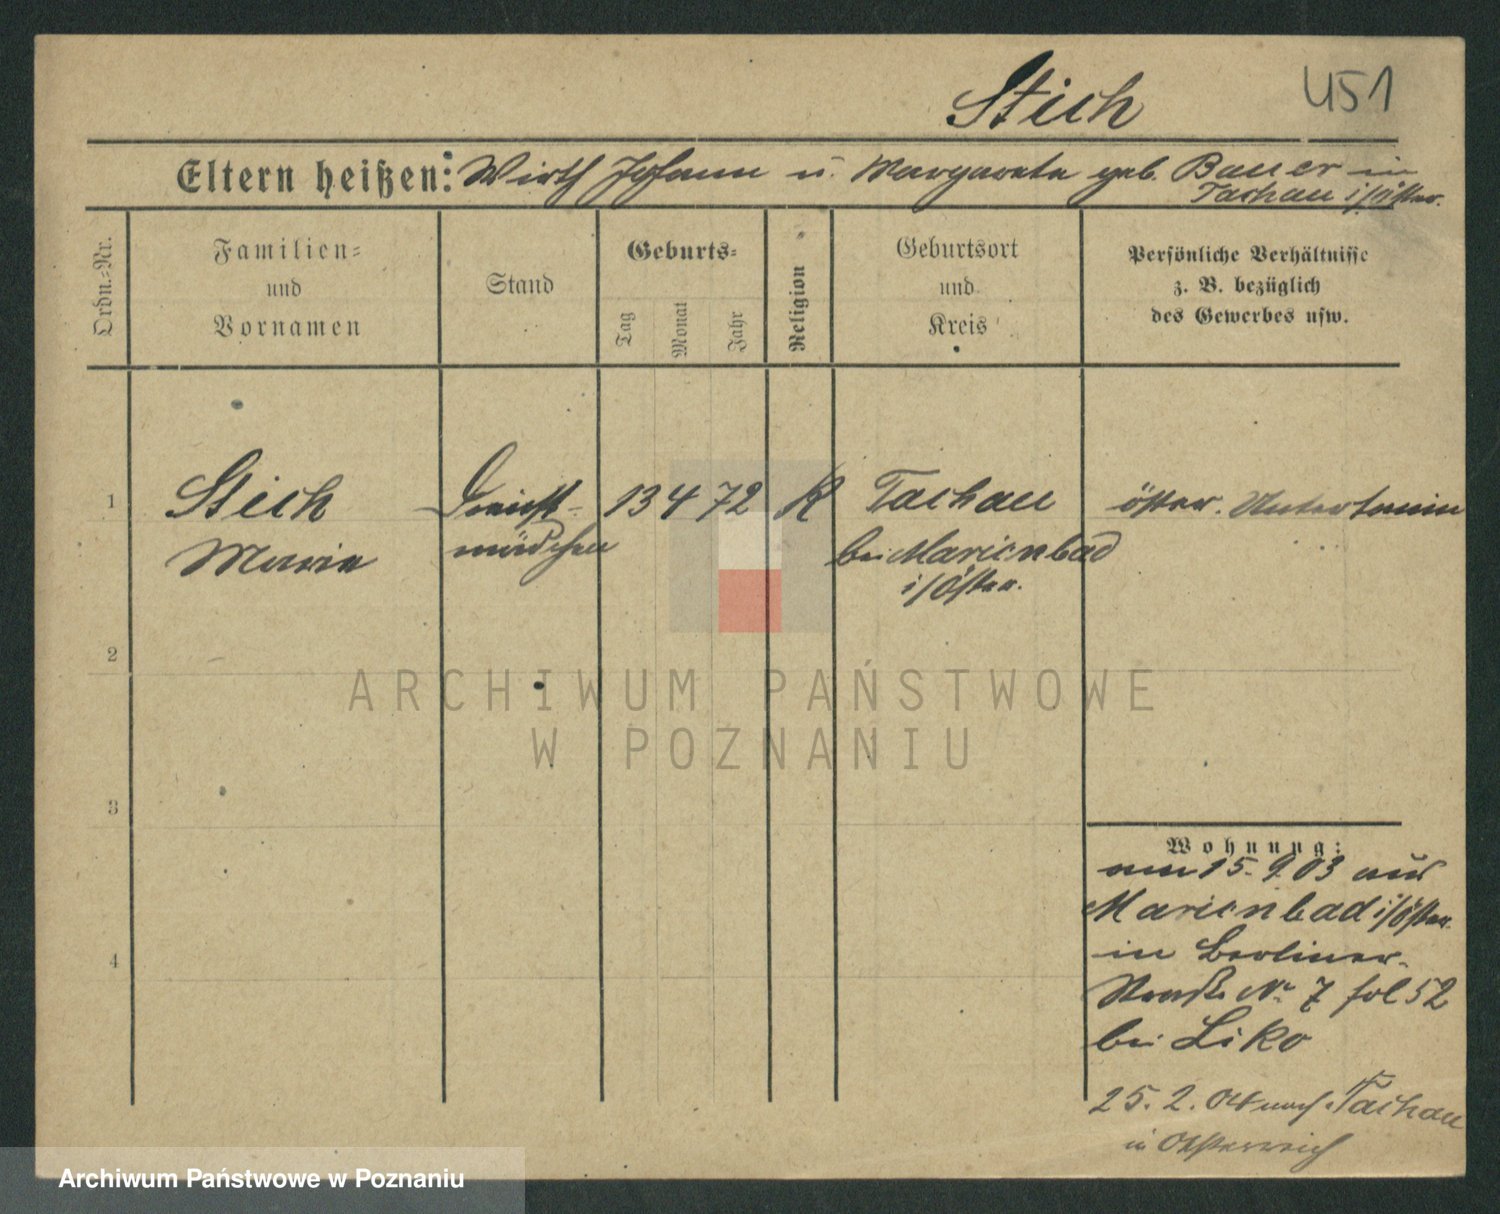 Stich
451
Eltern heißen: Wirth Johann u. Margareta geb. Bauer in
Tachau i/öster.
Ordn.-Nr.
Familien-
und
Vornamen
Stand
Geburts-
Tag
Monat
Jahr
Religion
Geburtsort
und
Kreis
Persönliche Verhältnisse
z. B. bezüglich
des Gewerbes usw.
1
Stich
Marie
Dienst-
mädchen
13 4 72
K
Tachau
bei Marienbad
i/Öster.
öster. Untertanin
2
3
4
Wohnung:
am 15. 9 03 aus
Marienbad i/öster.
in Berliner-
Straße No 7 fol 52
bei Liko
25. 2. 04 nach Tachau
in Oesterreich
ARCHIWUM PAŃSTWOWE
W POZNANIU
Archiwum Państwowe w Poznaniu